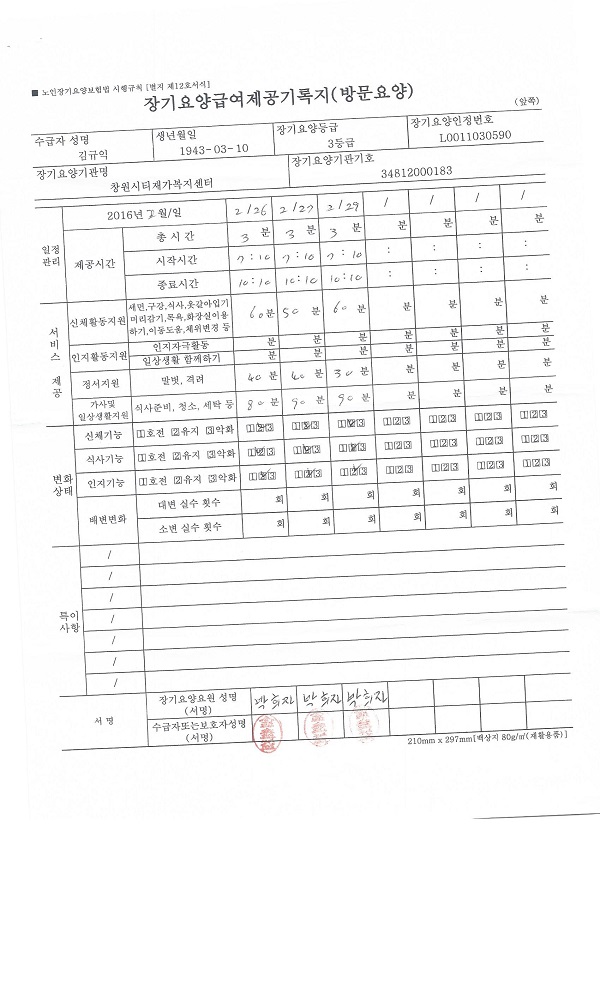 ■ 노인장기요양보험법 시행규칙 [별지 제12호서식]
장기요양급여제공기록지(방문요양)
(앞쪽)
수급자 성명 생년월일 장기요양등급 장기요양인정번호
김규익 1943-03-10 3등급 L0011030590
장기요양기관명 장기요양기관기호
창원시티재가복지센터 34812000183
일정관리 2016년 월/일 2/26 2/27 2/29 / / / /
제공시간 총 시 간 3 분 3 분 3 분 분 분 분 분
시작시간 7:10 7:10 7:10 : : : :
종료시간 10:10 10:10 10:10 : : : :
서비스 제공
신체활동지원 세면,구강,식사,옷갈아입기 머리감기,목욕,화장실이용하기,이동도움,체위변경 등 60분 50분 60분 분 분 분 분
인지활동지원 인지자극활동 분 분 분 분 분 분 분
일상생활 함께하기 분 분 분 분 분 분 분
정서지원 말벗, 격려 40분 40분 30분 분 분 분 분
가사및 일상생활지원 식사준비, 청소, 세탁 등 80분 90분 90분 분 분 분 분
변화상태
신체기능 1호전 2유지 3악화 123 123 123 123 123 123 123
식사기능 1호전 2유지 3악화 123 123 123 123 123 123 123
인지기능 1호전 2유지 3악화 123 123 123 123 123 123 123
배변변화 대변 실수 횟수 회 회 회 회 회 회 회
소변 실수 횟수 회 회 회 회 회 회 회
특이사항
/
/
/
/
/
/
/
서 명 장기요양요원 성명 (서명) 박희진 박희진 박희진
수급자또는보호자성명 (서명)
210mm x 297mm[백상지 80g/㎡(재활용품)]